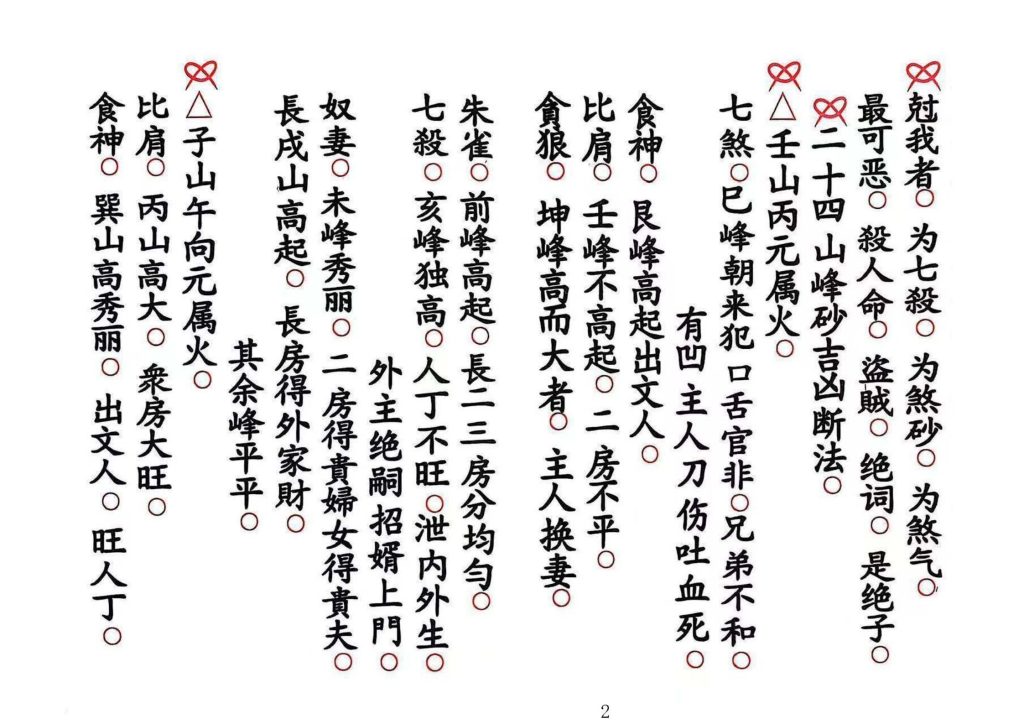 尅我者。为七殺。为煞砂。为煞气。
最可恶。殺人命。盗賊。绝词。是绝子。
二十四山峰砂吉凶断法。
△壬山丙元属火。
七煞。巳峰朝来犯口舌官非。兄弟不和。
有凹主人刀伤吐血死。
食神。艮峰高起出文人。
比肩。壬峰不高起。二房不平。
貪狼。坤峰高而大者。主人换妻。
朱雀。前峰高起。長二三房分均匀。
七殺。亥峰独高。人丁不旺。泄内外生。
外主绝嗣招婿上門。
奴妻。未峰秀丽。二房得貴婦女得貴夫。
長戌山高起。長房得外家財。
其余峰平平。
△子山午向元属火。
比肩。丙山高大。衆房大旺。
食神。巽山高秀丽。出文人。旺人丁。
2